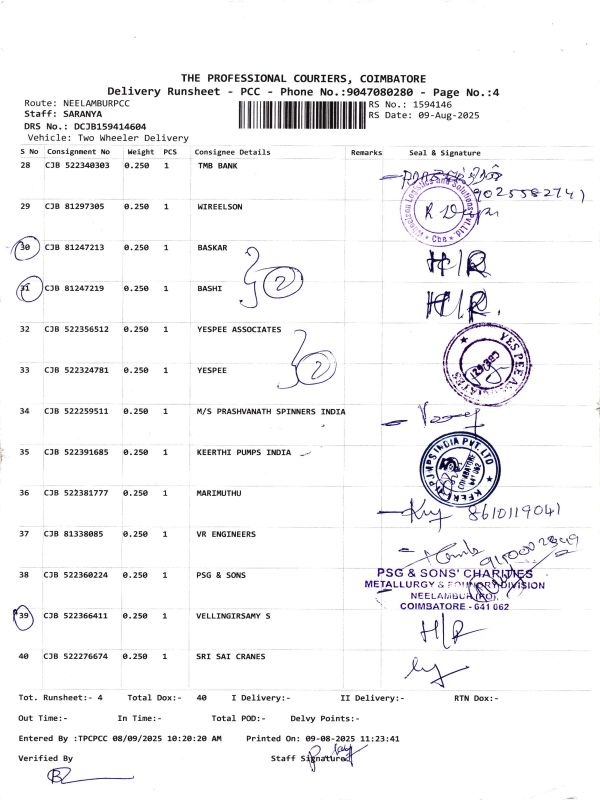 THE PROFESSIONAL COURIERS, COIMBATORE
Delivery Runsheet - PCC - Phone No.:9047080280 - Page No.:4
Route: NEELAMBURPCC RS No.: 1594146
Staff: SARANYA RS Date: 09-Aug-2025
DRS No.: DCJB159414604
Vehicle: Two Wheeler Delivery
S No Consignment No Weight PCS Consignee Details Remarks Seal & Signature
28 CJB 522340303 0.250 1 TMB BANK
9025582741
29 CJB 81297305 0.250 1 WIREELSON
30 CJB 81247213 0.250 1 BASKAR H/R
2
31 CJB 81247219 0.250 1 BASHI H/R.
32 CJB 522356512 0.250 1 YESPEE ASSOCIATES YES PEE ASSOCIATES
2
33 CJB 522324781 0.250 1 YESPEE
34 CJB 522259511 0.250 1 M/S PRASHVANATH SPINNERS INDIA
35 CJB 522391685 0.250 1 KEERTHI PUMPS INDIA
COIMBATORE
641 062
36 CJB 522381777 0.250 1 MARIMUTHU
8610119041
37 CJB 81338085 0.250 1 VR ENGINEERS
38 CJB 522360224 0.250 1 PSG & SONS PSG & SONS' CHARITIES
METALLURGY & FOUNDRY DIVISION
NEELAMBUR (PO),
COIMBATORE - 641 062
39 CJB 522366411 0.250 1 VELLINGIRSAMY S H/R
40 CJB 522276674 0.250 1 SRI SAI CRANES
Tot. Runsheet:- 4 Total Dox:- 40 I Delivery:- II Delivery:- RTN Dox:-
Out Time:- In Time:- Total POD:- Delvy Points:-
Entered By :TPCPCC 08/09/2025 10:20:20 AM Printed On: 09-08-2025 11:23:41
Verified By Staff Signature